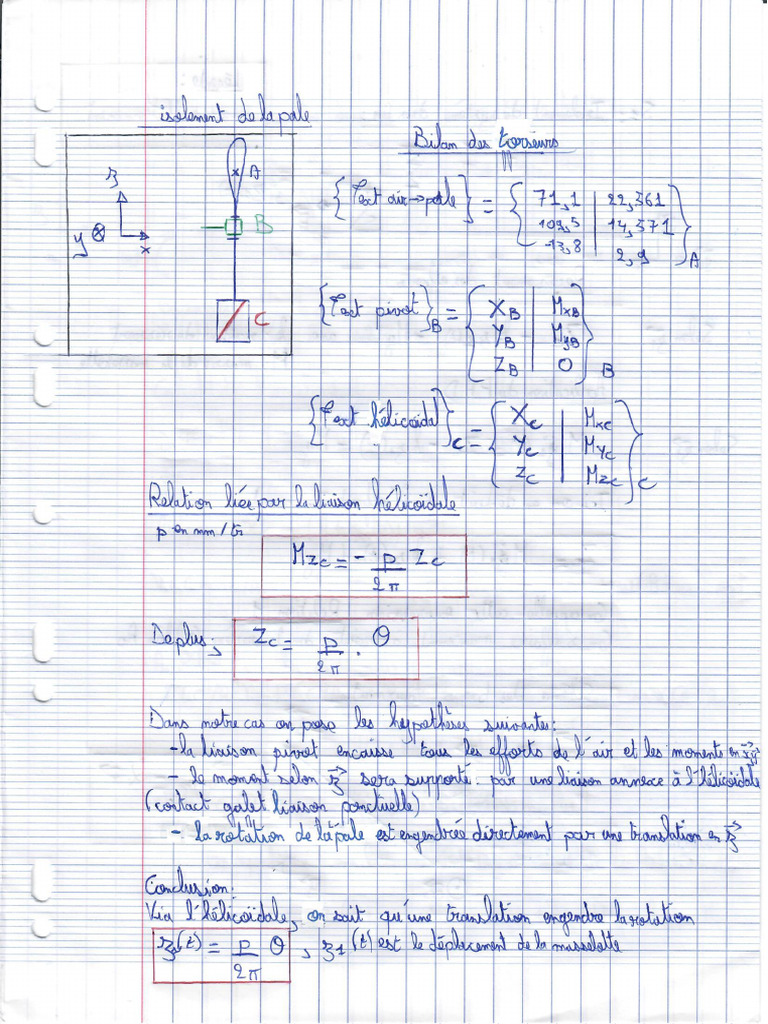 isolement de la pale
Bilan des torseurs
z
y
x
A
B
C
{Text air→pale} = { 71,1 | 22,361
109,5 | 14,371
-13,8 | 2,9 }A
{Text pivot}B = { XB | MxB
YB | MyB
ZB | 0 }B
{Text hélicoïdal}C = { XC | MxC
YC | MyC
ZC | MzC }C
Relation liée par la liaison hélicoïdale
p en mm/tr
MzC = - p/2π ZC
De plus; ZC = p/2π . θ
Dans notre cas on pose les hypothèses suivantes:
- la liaison pivot encaisse tous les efforts de l'air et les moments en xy
- le moment selon z sera supporté par une liaison annexe à l'hélicoïdale
(contact galet liaison ponctuelle)
- la rotation de la pale est engendrée directement par une translation en z
Conclusion:
Via l'hélicoïdale, on sait qu'une translation engendre la rotation
z1(t) = p/2π θ , z1(t) est le déplacement de la masselotte